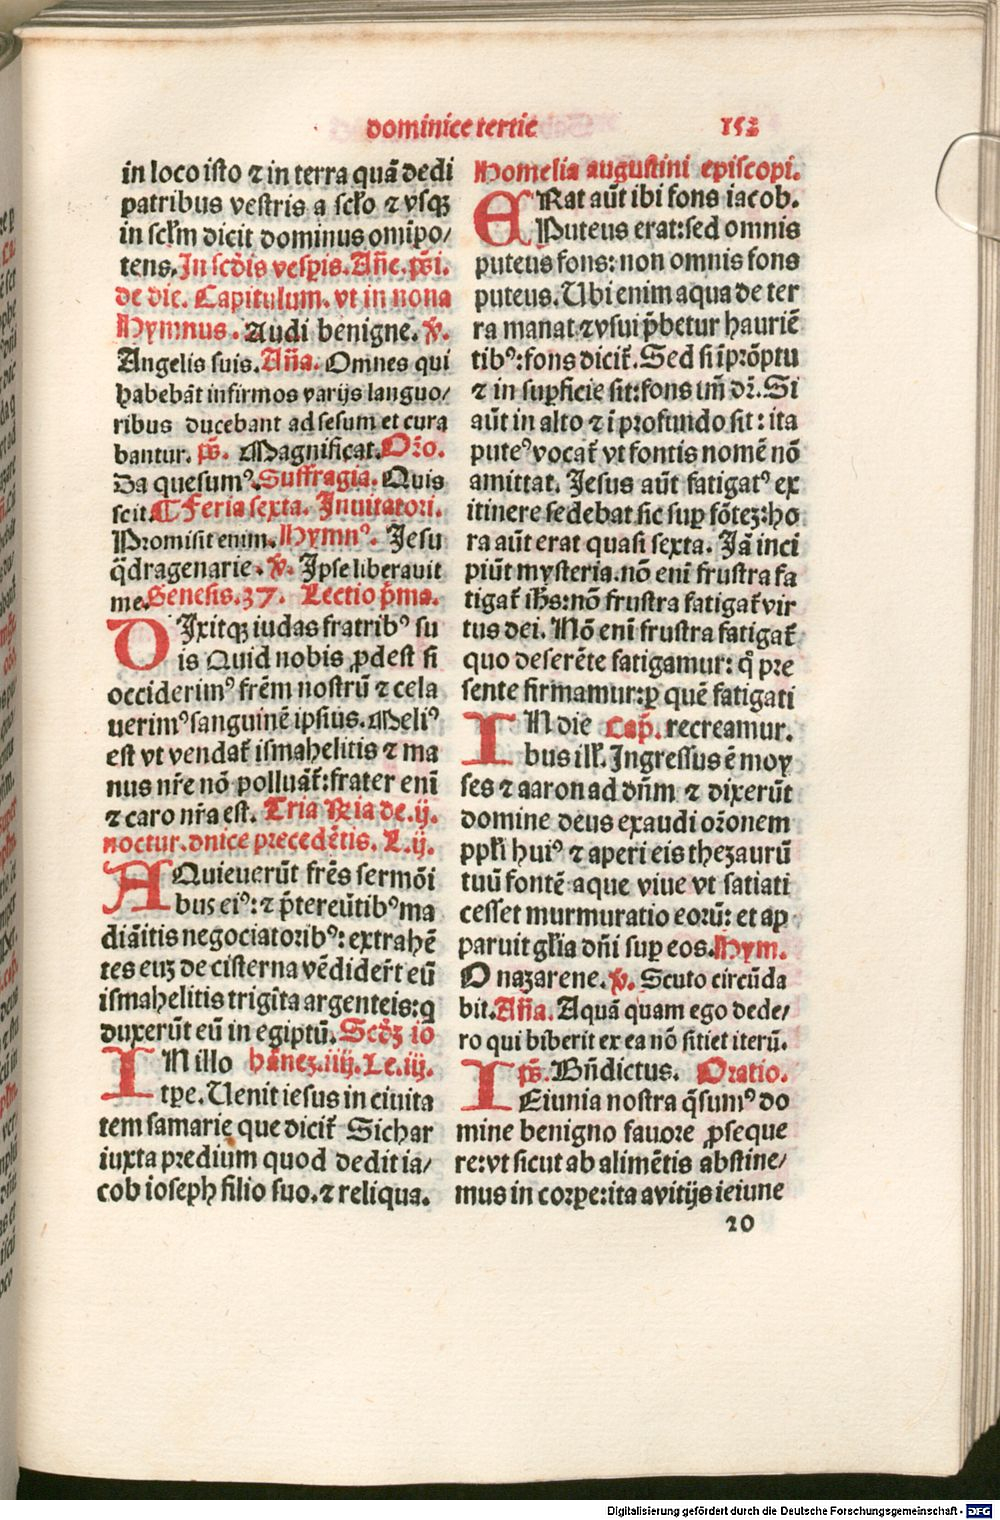 dominice tertie 153
in loco isto ⁊ in terra quā dedi
patribus vestris a scľo ⁊ vsqꝫ
in scľm dicit dominus omīpo⸗
tens. In scďis vesꝑis. Añe. ꝑs̄i.
de die. Capitulum. vt in nona
Hymnus. Audi benigne. ℣.
Angelis suis. Aña. Omnes qui
habebāt infirmos varijs languo⸗
ribus ducebant ad sesum et cura
bantur. p̄s. Magnificat. Oꝛ̄o.
Da quesumꝰ. Suffragia. Quis
scit. ¶ Feria sexta. Inuitatori.
Promisit enim. Hymnꝰ. Jesu
q̄dragenarie. ℣. Ipse liberauit
me. Genesis. 37. Lectio p̄ma.
DIxitqꝫ iudas fratribꝰ su
is Quid nobis ꝓdest si
occiderimꝰ frēm nostrū ⁊ cela
uerimꝰ sanguinē ipsius. Meliꝰ
est vt vendat̄ ismahelitis ⁊ ma
nus nr̄e nō polluāt̄: frater enī
⁊ caro nr̄a est. Tria R̄ia de .ij.
noctur. dnice precedētis. L. ij.
AQuieuerūt frēs sermōi
bus eiꝰ: ⁊ p̄tereūtibꝰ ma
diāitis negociatoribꝰ: extrahē
tes euꝫ de cisterna vēdider̄t eū
ismahelitis trigīta argenteis: q
duxerūt eū in egiptū. Scďꝫ io
IN illo hānez. iiij. Le. iij.
tꝑe. Uenit iesus in ciuita
tem samarie que dicit̄ Sichar
iuxta predium quod dedit ia⸗
cob ioseph filio suo. ⁊ reliqua.
Homelia augustini episcopi.
ERat aūt ibi fons iacob.
Puteus erat: sed omnis
puteus fons: non omnis fons
puteus. Ubi enim aqua de ter
ra manat ⁊ vsui p̄betur hauriē
tibꝰ: fons dicit̄. Sed si īprōptu
⁊ in suꝑficie sit: fons tm̄ dꝛ̄. Si
aūt in alto ⁊ ī profundo sit: ita
puteꝰ vocat̄ vt fontis nomē nō
amittat. Jesus aūt fatigatꝰ ex
itinere sedebat sic suꝑ fōteꝫ: ho
ra aūt erat quasi sexta. Jā inci
piūt mysteria. nō enī frustra fa
tigat̄ ihs̄: nō frustra fatigat̄ vir
tus dei. Nō enī frustra fatigat̄
quo deserēte fatigamur: q̄ pre
sente firmamur: ꝑ quē fatigati
IN die Cap̄. recreamur.
bus ill̄. Ingressus ē moy
ses ⁊ aaron ad dn̄m ⁊ dixerūt
domine deus exaudi oꝛ̄onem
ppľi huiꝰ ⁊ aperi eis thezaurū
tuū fontē aque viue vt satiati
cesset murmuratio eorū: et ap
paruit gľia dn̄i suꝑ eos. Hym.
O nazarene. ℣. Scuto circūda
bit. Aña. Aquā quam ego dede⸗
ro qui biberit ex ea nō sitiet iterū.
I p̄s. Bn̄dictus. Oratio.
Eiunia nostra q̄sumꝰ do
mine benigno fauore ꝓseque
re: vt sicut ab alimētis abstine⸗
mus in corpe: ita a vitijs ieiune
20
Digitalisierung gefördert durch die Deutsche Forschungsgemeinschaft - DFG